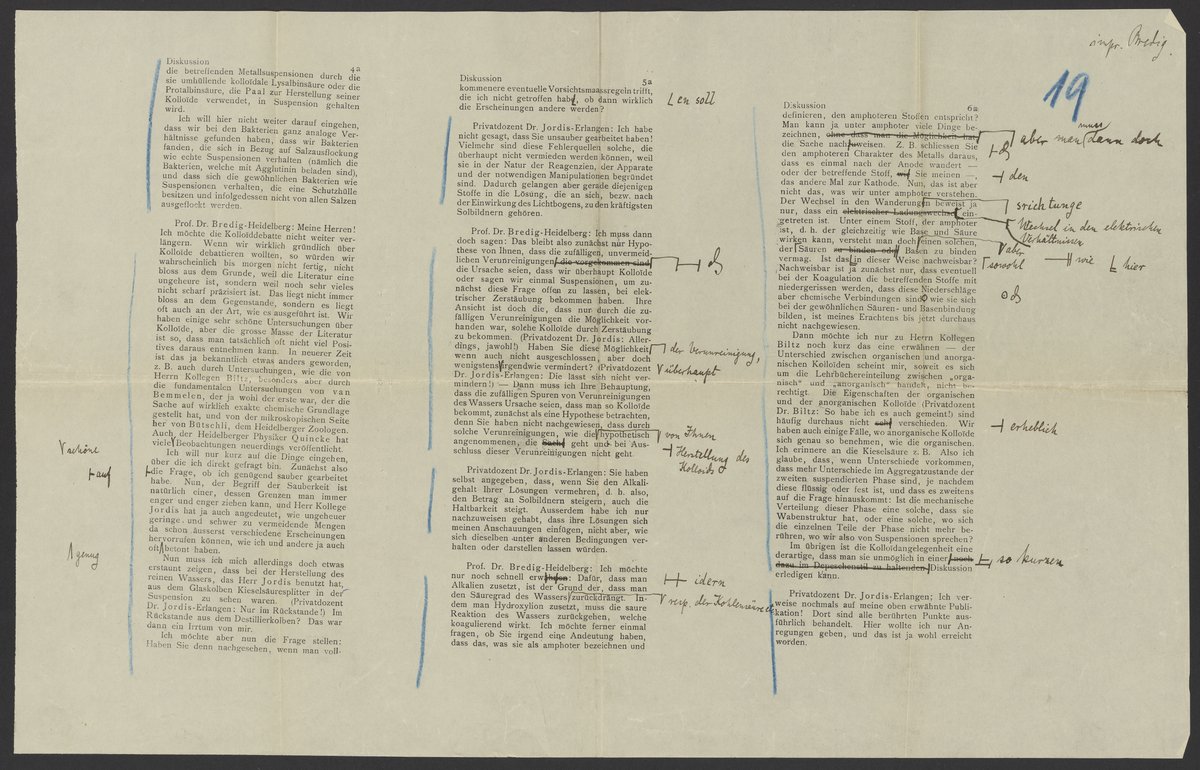 inspr. Bredig.
19
Diskussion
4a
die betreffenden Metallsuspensionen durch die
sie umhüllende kolloïdale Lysalbinsäure oder die
Protalbinsäure, die Paal zur Herstellung seiner
Kolloïde verwendet, in Suspension gehalten
wird.
Ich will hier nicht weiter darauf eingehen,
dass wir bei den Bakterien ganz analoge Ver-
hältnisse gefunden haben, dass wir Bakterien
fanden, die sich in Bezug auf Salzausflockung
wie echte Suspensionen verhalten (nämlich die
Bakterien, welche mit Agglutinin beladen sind),
und dass sich die gewöhnlichen Bakterien wie
Suspensionen verhalten, die eine Schutzhülle
besitzen und infolgedessen nicht von allen Salzen
ausgeflockt werden.
Prof. Dr. Bredig-Heidelberg: Meine Herren!
Ich möchte die Kolloïddebatte nicht weiter ver-
längern. Wenn wir wirklich gründlich über
Kolloïde debattieren wollten, so würden wir
wahrscheinlich bis morgen nicht fertig, nicht
bloss aus dem Grunde, weil die Literatur eine
ungeheure ist, sondern weil noch sehr vieles
nicht scharf präzisiert ist. Das liegt nicht immer
bloss an dem Gegenstande, sondern es liegt
oft auch an der Art, wie es ausgeführt ist. Wir
haben einige sehr schöne Untersuchungen über
Kolloïde, aber die grosse Masse der Literatur
ist so, dass man tatsächlich oft nicht viel Posi-
tives daraus entnehmen kann. In neuerer Zeit
ist das ja bekanntlich etwas anders geworden,
z. B. auch durch Untersuchungen, wie die von
Herrn Kollegen Biltz, besonders aber durch
die fundamentalen Untersuchungen von van
Bemmelen, der ja wohl der erste war, der die
Sache auf wirklich exakte chemische Grundlage
gestellt hat, und von der mikroskopischen Seite
her von Bütschli, dem Heidelberger Zoologen.
Auch der Heidelberger Physiker Quincke hat
viele Beobachtungen neuerdings veröffentlicht.
Ich will nur kurz auf die Dinge eingehen,
über die ich direkt gefragt bin. Zunächst also
die Frage, ob ich genügend sauber gearbeitet
habe. Nun, der Begriff der Sauberkeit ist
natürlich einer, dessen Grenzen man immer
enger und enger ziehen kann, und Herr Kollege
Jordis hat ja auch angedeutet, wie ungeheuer
geringe und schwer zu vermeidende Mengen
da schon äusserst verschiedene Erscheinungen
hervorrufen können, wie ich und andere ja auch
oft betont haben.
Nun muss ich mich allerdings doch etwas
erstaunt zeigen, dass bei der Herstellung des
reinen Wassers, das Herr Jordis benutzt hat,
aus dem Glaskolben Kieselsäuresplitter in der
Suspension zu sehen waren. (Privatdozent
Dr. Jordis-Erlangen: Nur im Rückstande!) Im
Rückstande aus dem Destillierkolben? Das war
dann ein Irrtum von mir.
Ich möchte aber nun die Frage stellen:
Haben Sie denn nachgesehen, wenn man voll-
schöne
auf
genug
Diskussion
5a
kommenere eventuelle Vorsichtsmaassregeln trifft,
die ich nicht getroffen hab, ob dann wirklich
die Erscheinungen andere werden?
en soll
Privatdozent Dr. Jordis-Erlangen: Ich habe
nicht gesagt, dass Sie unsauber gearbeitet haben!
Vielmehr sind diese Fehlerquellen solche, die
überhaupt nicht vermieden werden können, weil
sie in der Natur der Reagenzien, der Apparate
und der notwendigen Manipulationen begründet
sind. Dadurch gelangen aber gerade diejenigen
Stoffe in die Lösung, die an sich, bezw. nach
der Einwirkung des Lichtbogens, zu den kräftigsten
Solbildnern gehören.
Prof. Dr. Bredig-Heidelberg: Ich muss dann
doch sagen: Das bleibt also zunächst nur Hypo-
these von Ihnen, dass die zufälligen, unvermeid-
lichen Verunreinigungen, die vorgekommen sind,
die Ursache seien, dass wir überhaupt Kolloïde
oder sagen wir einmal Suspensionen, um zu-
nächst diese Frage offen zu lassen, bei elek-
trischer Zerstäubung bekommen haben. Ihre
Ansicht ist doch die, dass nur durch die zu-
fälligen Verunreinigungen die Möglichkeit vor-
handen war, solche Kolloïde durch Zerstäubung
zu bekommen. (Privatdozent Dr. Jordis: Aller-
dings, jawohl!) Haben Sie diese Möglichkeit,
wenn auch nicht ausgeschlossen, aber doch
wenigstens irgendwie vermindert? (Privatdozent
Dr. Jordis-Erlangen: Die lässt sich nicht ver-
mindern!) — Dann muss ich Ihre Behauptung,
dass die zufälligen Spuren von Verunreinigungen
des Wassers Ursache seien, dass man so Kolloïde
bekommt, zunächst als eine Hypothese betrachten,
denn Sie haben nicht nachgewiesen, dass durch
solche Verunreinigungen, wie die hypothetisch
angenommenen, die Sache geht und bei Aus-
schluss dieser Verunreinigungen nicht geht.
der Verunreinigung,
überhaupt
von Ihnen
Herstellung des
Kolloids
Privatdozent Dr. Jordis-Erlangen: Sie haben
selbst angegeben, dass, wenn Sie den Alkali-
gehalt Ihrer Lösungen vermehren, d. h. also,
den Betrag an Solbildnern steigern, auch die
Haltbarkeit steigt. Ausserdem habe ich nur
nachzuweisen gehabt, dass ihre Lösungen sich
meinen Anschauungen einfügen, nicht aber, wie
sich dieselben unter anderen Bedingungen ver-
halten oder darstellen lassen würden.
Prof. Dr. Bredig-Heidelberg: Ich möchte
nur noch schnell erw: Dafür, dass man
Alkalien zusetzt, ist der Grund der, dass man
den Säuregrad des Wassers zurückdrängt. In-
dem man Hydroxylion zusetzt, muss die saure
Reaktion des Wassers zurückgehen, welche
koagulierend wirkt. Ich möchte ferner einmal
fragen, ob Sie irgend eine Andeutung haben,
dass das, was sie als amphoter bezeichnen und
idern
resp. der Kohlensäure
Diskussion
6a
definieren, den amphoteren Stoffen entspricht?
Man kann ja unter amphoter viele Dinge be-
zeichnen, ohne dass man die Möglichkeit hat,
die Sache nachzuweisen. Z. B. schliessen Sie
den amphoteren Charakter des Metalls daraus,
dass es einmal nach der Anode wandert —
oder der betreffende Stoff, Sie meinen —,
das andere Mal zur Kathode. Nun, das ist aber
nicht das, was wir unter amphoter verstehen.
Der Wechsel in den Wanderungen beweist ja
nur, dass ein elektrischer Ladungswechsel ein-
getreten ist. Unter einem Stoff, der amphoter
ist, d. h. der gleichzeitig wie Base und Säure
wirken kann, versteht man doch einen solchen,
der Säuren zu binden und Basen zu binden
vermag. Ist das in dieser Weise nachweisbar?
Nachweisbar ist ja zunächst nur, dass eventuell
bei der Koagulation die betreffenden Stoffe mit
niedergerissen werden, dass diese Niederschläge
aber chemische Verbindungen sind, wie sie sich
bei der gewöhnlichen Säuren- und Basenbindung
bilden, ist meines Erachtens bis jetzt durchaus
nicht nachgewiesen.
muss
aber man dann doch
den
srichtunge
Wechsel in den elektrischen
Verhältnissen
aber
sowohl
wie
hier
Dann möchte ich nur zu Herrn Kollegen
Biltz noch kurz das eine erwähnen — der
Unterschied zwischen organischen und anorga-
nischen Kolloïden scheint mir, soweit es sich
um die Lehrbüchereinteilung zwischen „orga-
nisch“ und „anorganisch“ handelt, nicht be-
rechtigt. Die Eigenschaften der organischen
und der anorganischen Kolloïde (Privatdozent
Dr. Biltz: So habe ich es auch gemeint!) sind
häufig durchaus nicht sehr verschieden. Wir
haben auch einige Fälle, wo anorganische Kolloïde
sich genau so benehmen, wie die organischen.
Ich erinnere an die Kieselsäure z. B. Also ich
glaube, dass, wenn Unterschiede vorkommen,
dass mehr Unterschiede im Aggregatzustande der
zweiten suspendierten Phase sind, je nachdem
diese flüssig oder fest ist, und dass es zweitens
auf die Frage hinauskommt: Ist die mechanische
Verteilung dieser Phase eine solche, dass sie
Wabenstruktur hat, oder eine solche, wo sich
die einzelnen Teile der Phase nicht mehr be-
rühren, wo wir also von Suspensionen sprechen?
Im übrigen ist die Kolloïdangelegenheit eine
derartige, dass man sie unmöglich in einer
dazu im Depeschenstil zu haltenden Diskussion
erledigen kann.
erheblich
so kurzen
Privatdozent Dr. Jordis-Erlangen; Ich ver-
weise nochmals auf meine oben erwähnte Publi-
kation! Dort sind alle berührten Punkte aus-
führlich behandelt. Hier wollte ich nur An-
regungen geben, und das ist ja wohl erreicht
worden.